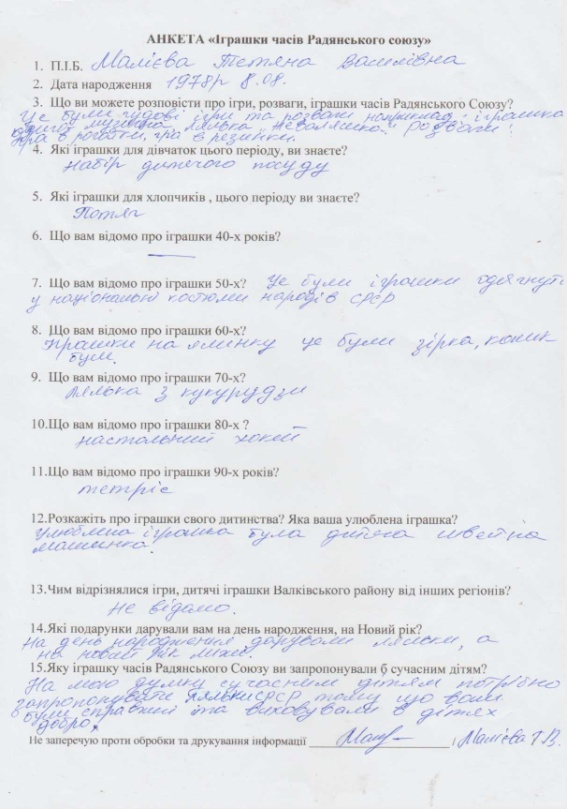 АНКЕТА «Іграшки часів Радянського союзу»
1. П.І.Б. Малієва Тетяна Василівна
2. Дата народження 1978р 8.08.
3. Що ви можете розповісти про ігри, розваги, іграшки часів Радянського Союзу?
Це були чудові ігри та розваги наприклад: іграшка
дитяча лялька "Неваляшка" розваги:
гра в резинки.
4. Які іграшки для дівчаток цього періоду, ви знаєте?
Набір дитячого посуду
5. Які іграшки для хлопчиків , цього періоду ви знаєте?
Потяг
6. Що вам відомо про іграшки 40-х років?
—
7. Що вам відомо про іграшки 50-х? Це були іграшки одягнуті
у національні костюми народів СРСР
8. Що вам відомо про іграшки 60-х?
Іграшки на ялинку це були зірка,
9. Що вам відомо про іграшки 70-х?
Лялька з кукурудзи
10.Що вам відомо про іграшки 80-х ?
настольний хокей
11.Що вам відомо про іграшки 90-х років?
тетріс
12.Розкажіть про іграшки свого дитинства? Яка ваша улюблена іграшка?
Улюблена іграшка була дитяча швейна
машинка.
13.Чим відрізнялися ігри, дитячі іграшки Валківського району від інших регіонів?
Не відомо.
14.Які подарунки дарували вам на день народження, на Новий рік?
На день народження дарували ляльки, а
на новий рік лижі.
15.Яку іграшку часів Радянського Союзу ви запропонували б сучасним дітям?
На мою думку сучасним дітям потрібно
запропонувати ляльки СРСР тому що вони
були справжні та виховували в дітях
добро.
Не заперечую проти обробки та друкування інформації / Малієва Т.В.